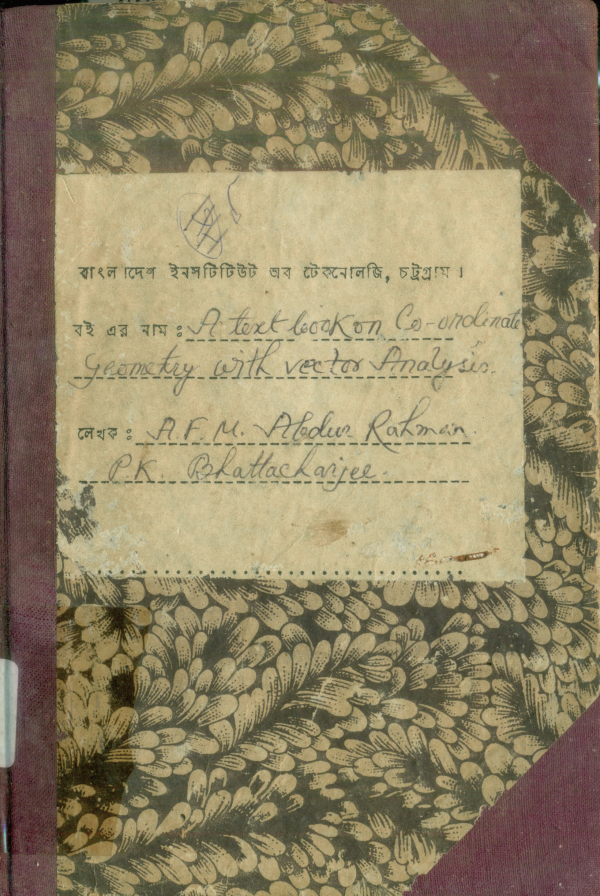 বাংলাদেশ ইনসটিটিউট অব টেকনোলজি, চট্রগ্রাম।
বই এর নাম : A text book on Co-ordinate
Geometry with vector Analysis.
লেখক : A.F.M. Abdur Rahman.
P.K. Bhattacharjee.